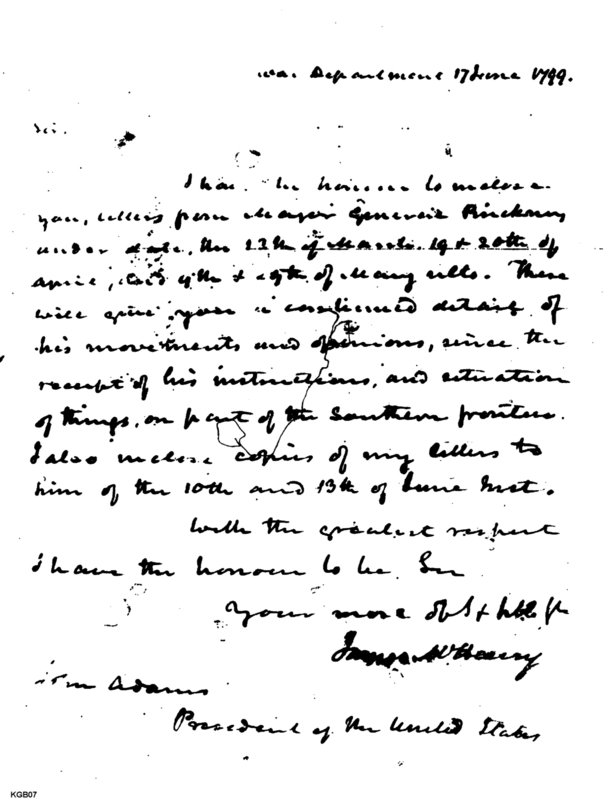 War Department 17 June 1799.
Sir.
I have the honour to inclose
you, letters from Major General Pinckney
under date, the 13th of March 19 & 20th of
april, and 9th & of May ulto. These
will give you a continued detail of
his movements and opinions, since the
receipt of his instructions, and situation
of things, on part of the Southern frontier.
I also inclose copies of my letters to
him of the 10th and 13th of June Inst.
With the greatest respect
I have the honour to be, Sir
Your most obt & hble
James McHenry
John Adams
President of the United States
KGB07